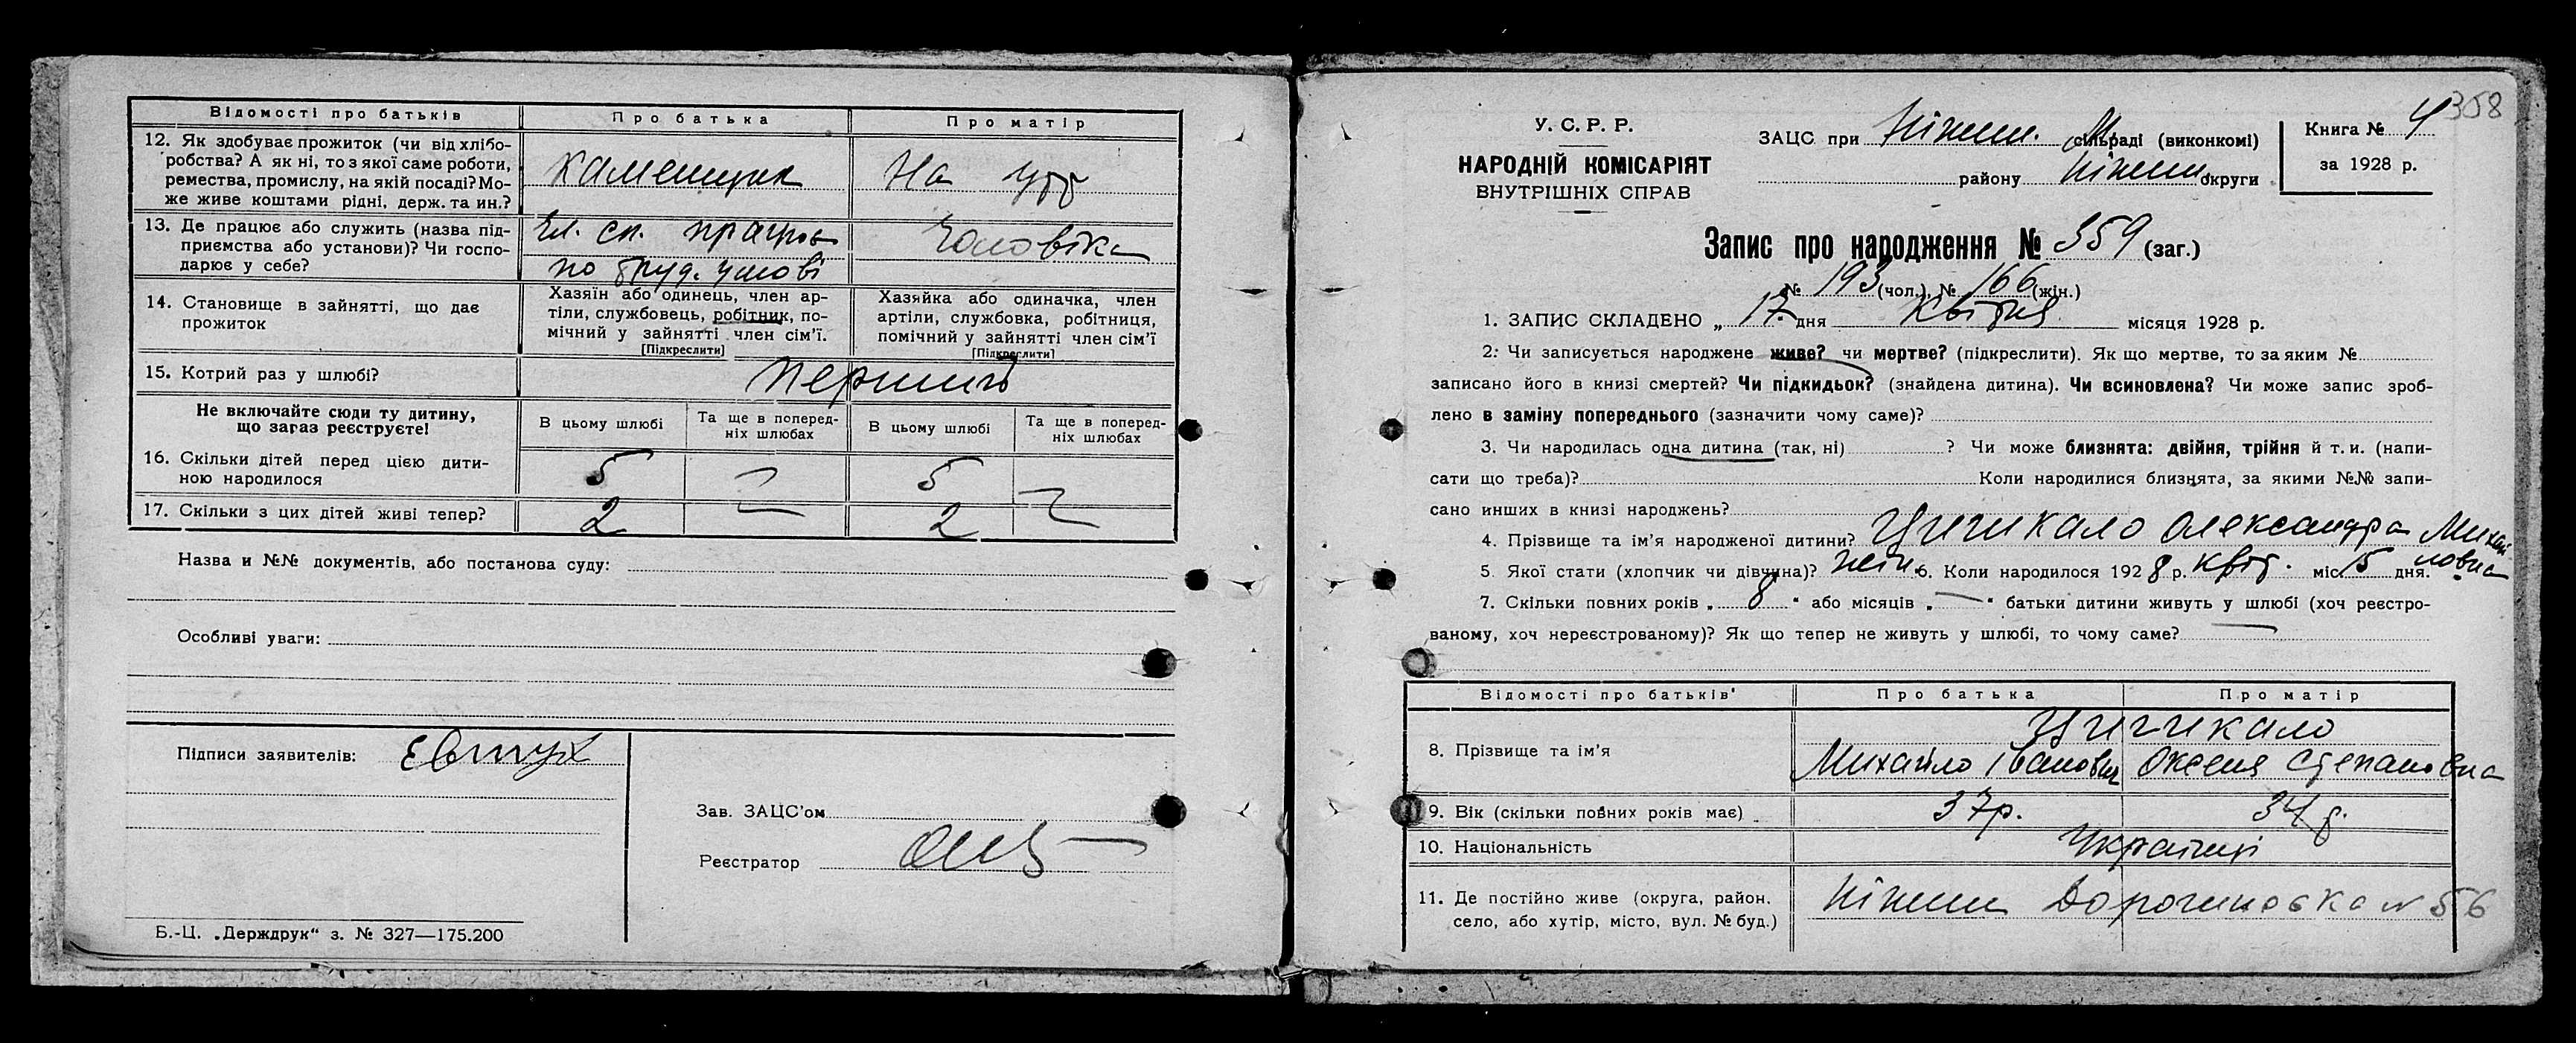 Відомості про батьків Про батька Про матір
12. Як здобуває прожиток (чи від хлібо-
робства? А як ні, то з якої саме роботи,
ремества, промислу, на якій посаді? Мо-
же живе коштами рідні, держ. та ин.?
каменщик На утр
13. Де працює або служить (назва під-
приємства або установи)? Чи госпо-
дарює у себе?
Чл. сп. працює чоловіка
по труд. умові
14. Становище в зайнятті, що дає
прожиток
Хазяїн або одинець, член ар-
тіли, службовець, робітник, по-
мічний у зайнятті член сім'ї.
[Підкреслити]
Хазяйка або одиначка, член
артіли, службовка, робітниця,
помічний у зайнятті член сім'ї
[Підкреслити]
15. Котрий раз у шлюбі? перший
Не включайте сюди ту дитину,
що зараз реєструєте!
В цьому шлюбі Та ще в поперед-
ніх шлюбах В цьому шлюбі Та ще в поперед-
ніх шлюбах
16. Скільки дітей перед цією дити-
ною народилося
5 — 5 —
17. Скільки з цих дітей живі тепер? 2 — 2 —
Назва и №№ документів, або постанова суду:
Особливі уваги:
Підписи заявителів: Евтух
Зав. ЗАЦС'ом
Реєстратор
Б.-Ц. „Держдрук“ з. № 327—175.200
358
У. С. Р. Р.
НАРОДНІЙ КОМІСАРІЯТ
ВНУТРІШНІХ СПРАВ
ЗАЦС при Ніжин. М. сільраді (виконкомі)
району Ніжин. округи
Книга № 4
за 1928 р.
Запис про народження № 359 (заг.)
№ 193 (чол.), № 166 (жін.)
1. ЗАПИС СКЛАДЕНО „ 17. дня Квітня місяця 1928 р.
2. Чи записується народжене живе? чи мертве? (підкреслити). Як що мертве, то за яким №
записано його в книзі смертей? Чи підкидьок? (знайдена дитина). Чи всиновлена? Чи може запис зроб-
лено в заміну попереднього (зазначити чому саме)?
3. Чи народилась одна дитина (так, ні) ? Чи може близнята: двійня, трійня й т. и. (напи-
сати що треба)? Коли народилися близнята, за якими №№ запи-
сано инших в книзі народжень?
4. Прізвище та ім'я народженої дитини? Цигикало Олександра Михай
ловна
5. Якої стати (хлопчик чи дівчина)? жін. 6. Коли народилося 1928 р. квіт. міс. 5 дня.
7. Скільки повних років „ 8 “ або місяців „ — “ батьки дитини живуть у шлюбі (хоч реєстро-
ваному, хоч нереєстрованому)? Як що тепер не живуть у шлюбі, то чому саме? —
Відомості про батьків Про батька Про матір
8. Прізвище та ім'я
Цигикало
Михайло Іванович Оксеня Степановна
9. Вік (скільки повних років має) 37р. 34 р.
10. Національність Українці
11. Де постійно живе (округа, район.
село, або хутір, місто, вул. № буд.)
Ніжин Дорогиновка N 56